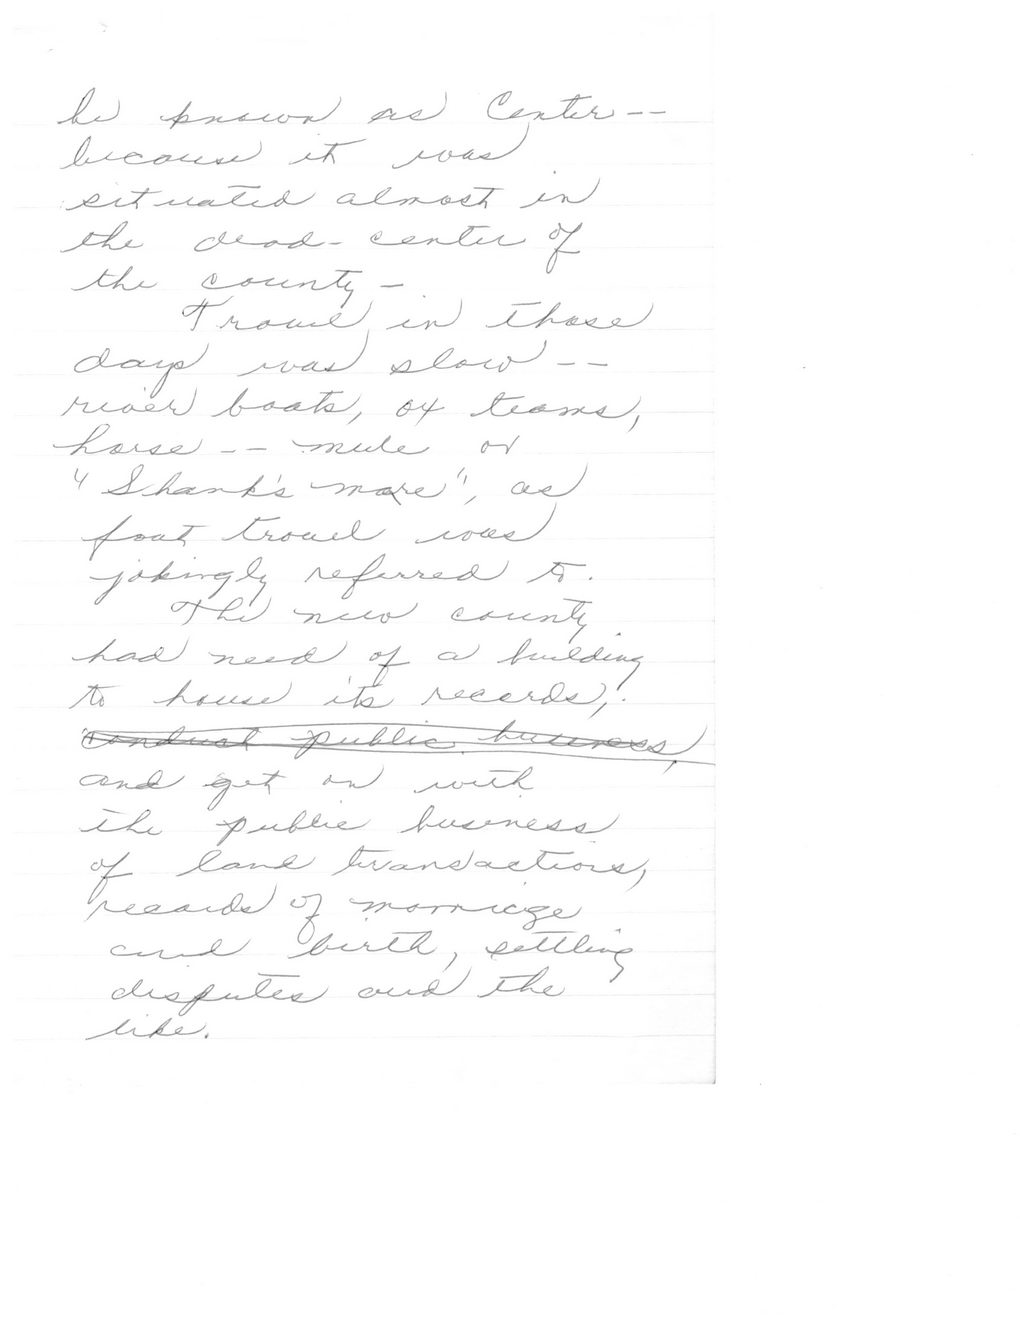 be known as Center--
because it was
situated almost in
the dead-center of
the county-
Travel in those
days was slow--
river boats, ox teams,
horse -- mule or
"Shank's mare", as
foot travel was
jokingly referred to.
The new county
had need of a building
to house its records,
conduct public business,
and get on with
the public business
of land transactions,
records of marriage
and birth, settling
disputes and the
like.